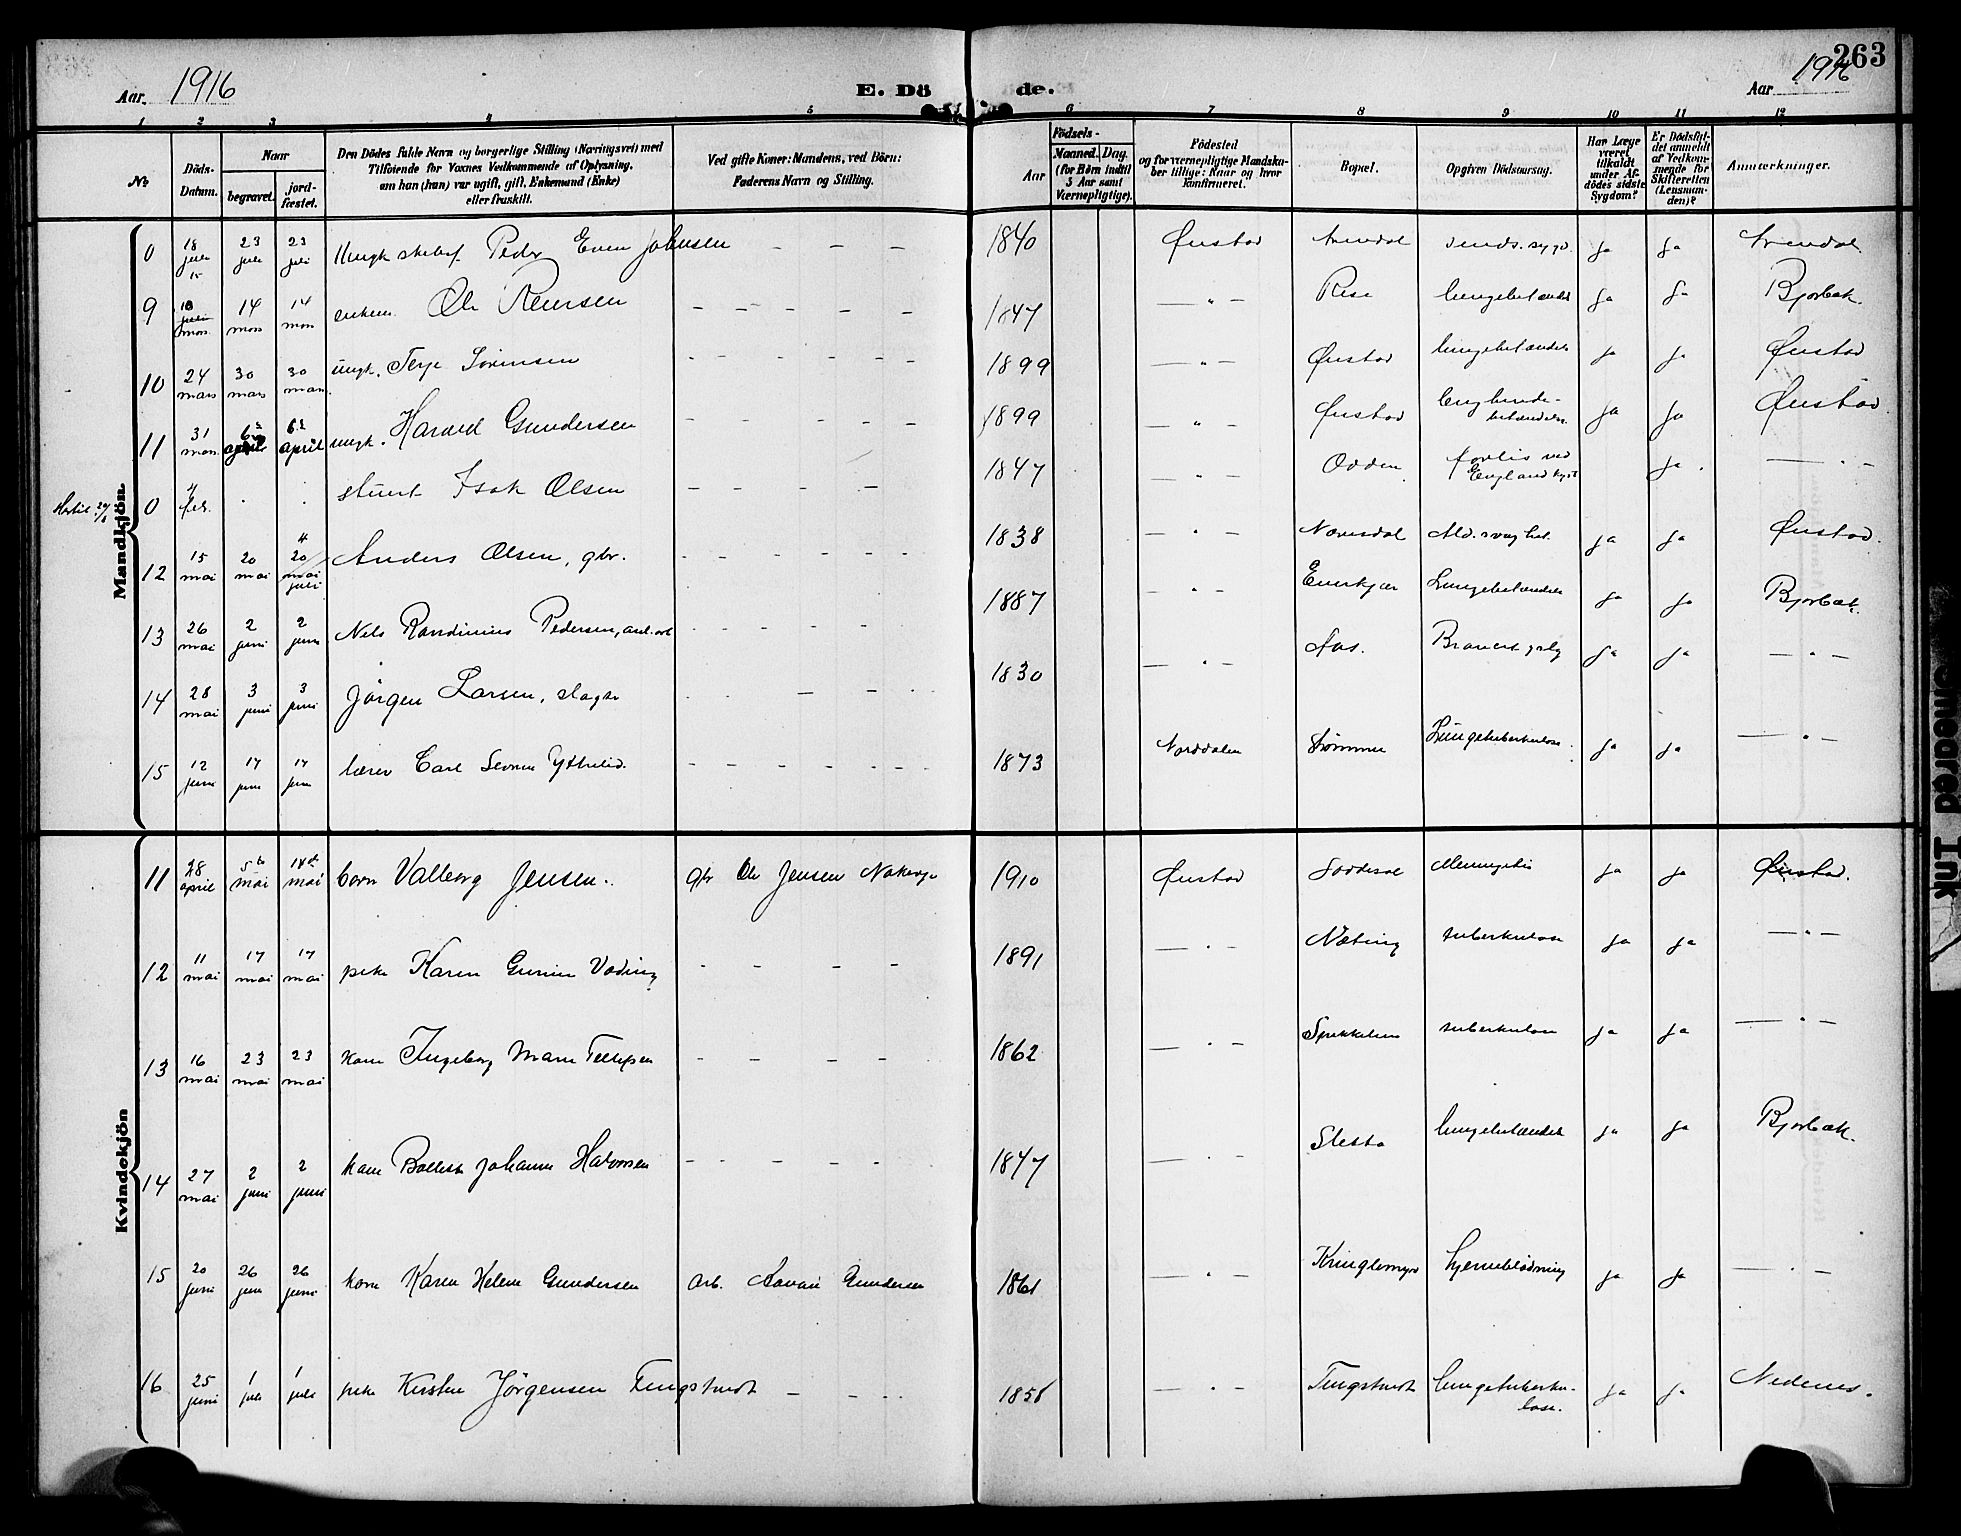 263
Aar. 1916 E. Dö de. Aar 1916
1 2 3 4 5 6 7 8 9 10 11 12
No
Döds-
Datum.
Naar
begravet.
jord-
fæstet.
Den Dödes fulde Navn og borgerlige Stilling (Næringsvei) med
Tilföiende for Voxnes Vedkommende af Oplysning,
om han (hun) var ugift, gift, Enkemand (Enke)
eller fraskilt.
Ved gifte Koner: Mandens, ved Börn:
Faderens Navn og Stilling.
Födsels-
Aar
Maaned. Dag.
(for Börn indtil
3 Aar samt
Værnepligtige).
Födested
og for værnepligtige Mandska-
ber tillige: Naar og hvor
konfirmeret.
Bopæl.
Opgiven Dödsaarsag.
Har Læge
været
tilkaldt
under Af-
dödes sidste
Sygdom?
Er Dödsfal-
det anmeldt
af Vedkom-
mende for
Skifteretten
(Lensman-
den)?
Anmærkninger.
Mandkjön.
0 18 juli 23 juli 23 juli Peder Even Johnsen — — — 1840 Øiestad Arendal ja ja Arendal
9 14 mars 14 mars enkem. — — — — — 1847 — " — Rise lungebetændelse ja ja Bjorbæk.
10 24 mars 30 mars 30 mars ungk. Terje Sörensen - - - - - 1899 — " — Øiestad lungebetændelse ja ja Øiestad
11 31 mars 6 april 6 april ungk. Harald Gundersen - - - - 1899 — " — Øiestad ja ja Øiestad.
0 4 febr. . . stuert Isak Olsen - - - - 1847 Odden forlis ved Englands kyst ja. — " —
12 15 mai 20 mai 20 mai 4 juli Anders Olsen, gbr. - - - - - 1838 — " — ja ja Øiestad.
13 26 mai 2 juni 2 juni Nels Pedersen, - - - - 1887 - " - lungebetændelse ja ja Bjorbæk.
14 28 mai 3 juni 3 juni Jörgen Larsen, slagter . . — - . . 1830 — " — Aas. ja ja — " —
15 12 juni 17 juni 17 juni lærer Carl - - - - - - 1873 Norddalen Strømmen Lungetuberkulose. ja ja — " —
Kvindekjön
11 28 april 5 mai 14 mai barn Valborg Jensen. gbr Ole Jensen 1910 Øiestad ja ja Øiestad.
12 11 mai 17 mai 17 mai pike Karen - - - - 1891 — " — tuberkulose ja ja — " —
13 16 mai 23 mai 23 mai kone Ingeborg Marie Tellefsen - - - - 1862 — " — tuberkulose ja ja — " —
14 27 mai 2 juni 2 juni kone Johanne Halvorsen - - - - - 1847 — " — lungebetændelse ja ja Bjorbæk.
15 20 juni 26 juni 26 juni kone Karen Helene Gundersen arb. Gundersen 1861 — " — Kringlemyr hjerneblödning ja ja — " —
16 25 juni 1 juli 1 juli pike Kirsten Jörgensen Tingstveit — — - . . 1858 — " — Tingstveit lungetuberku-
lose. ja ja Nedenes.
Smeared Ink